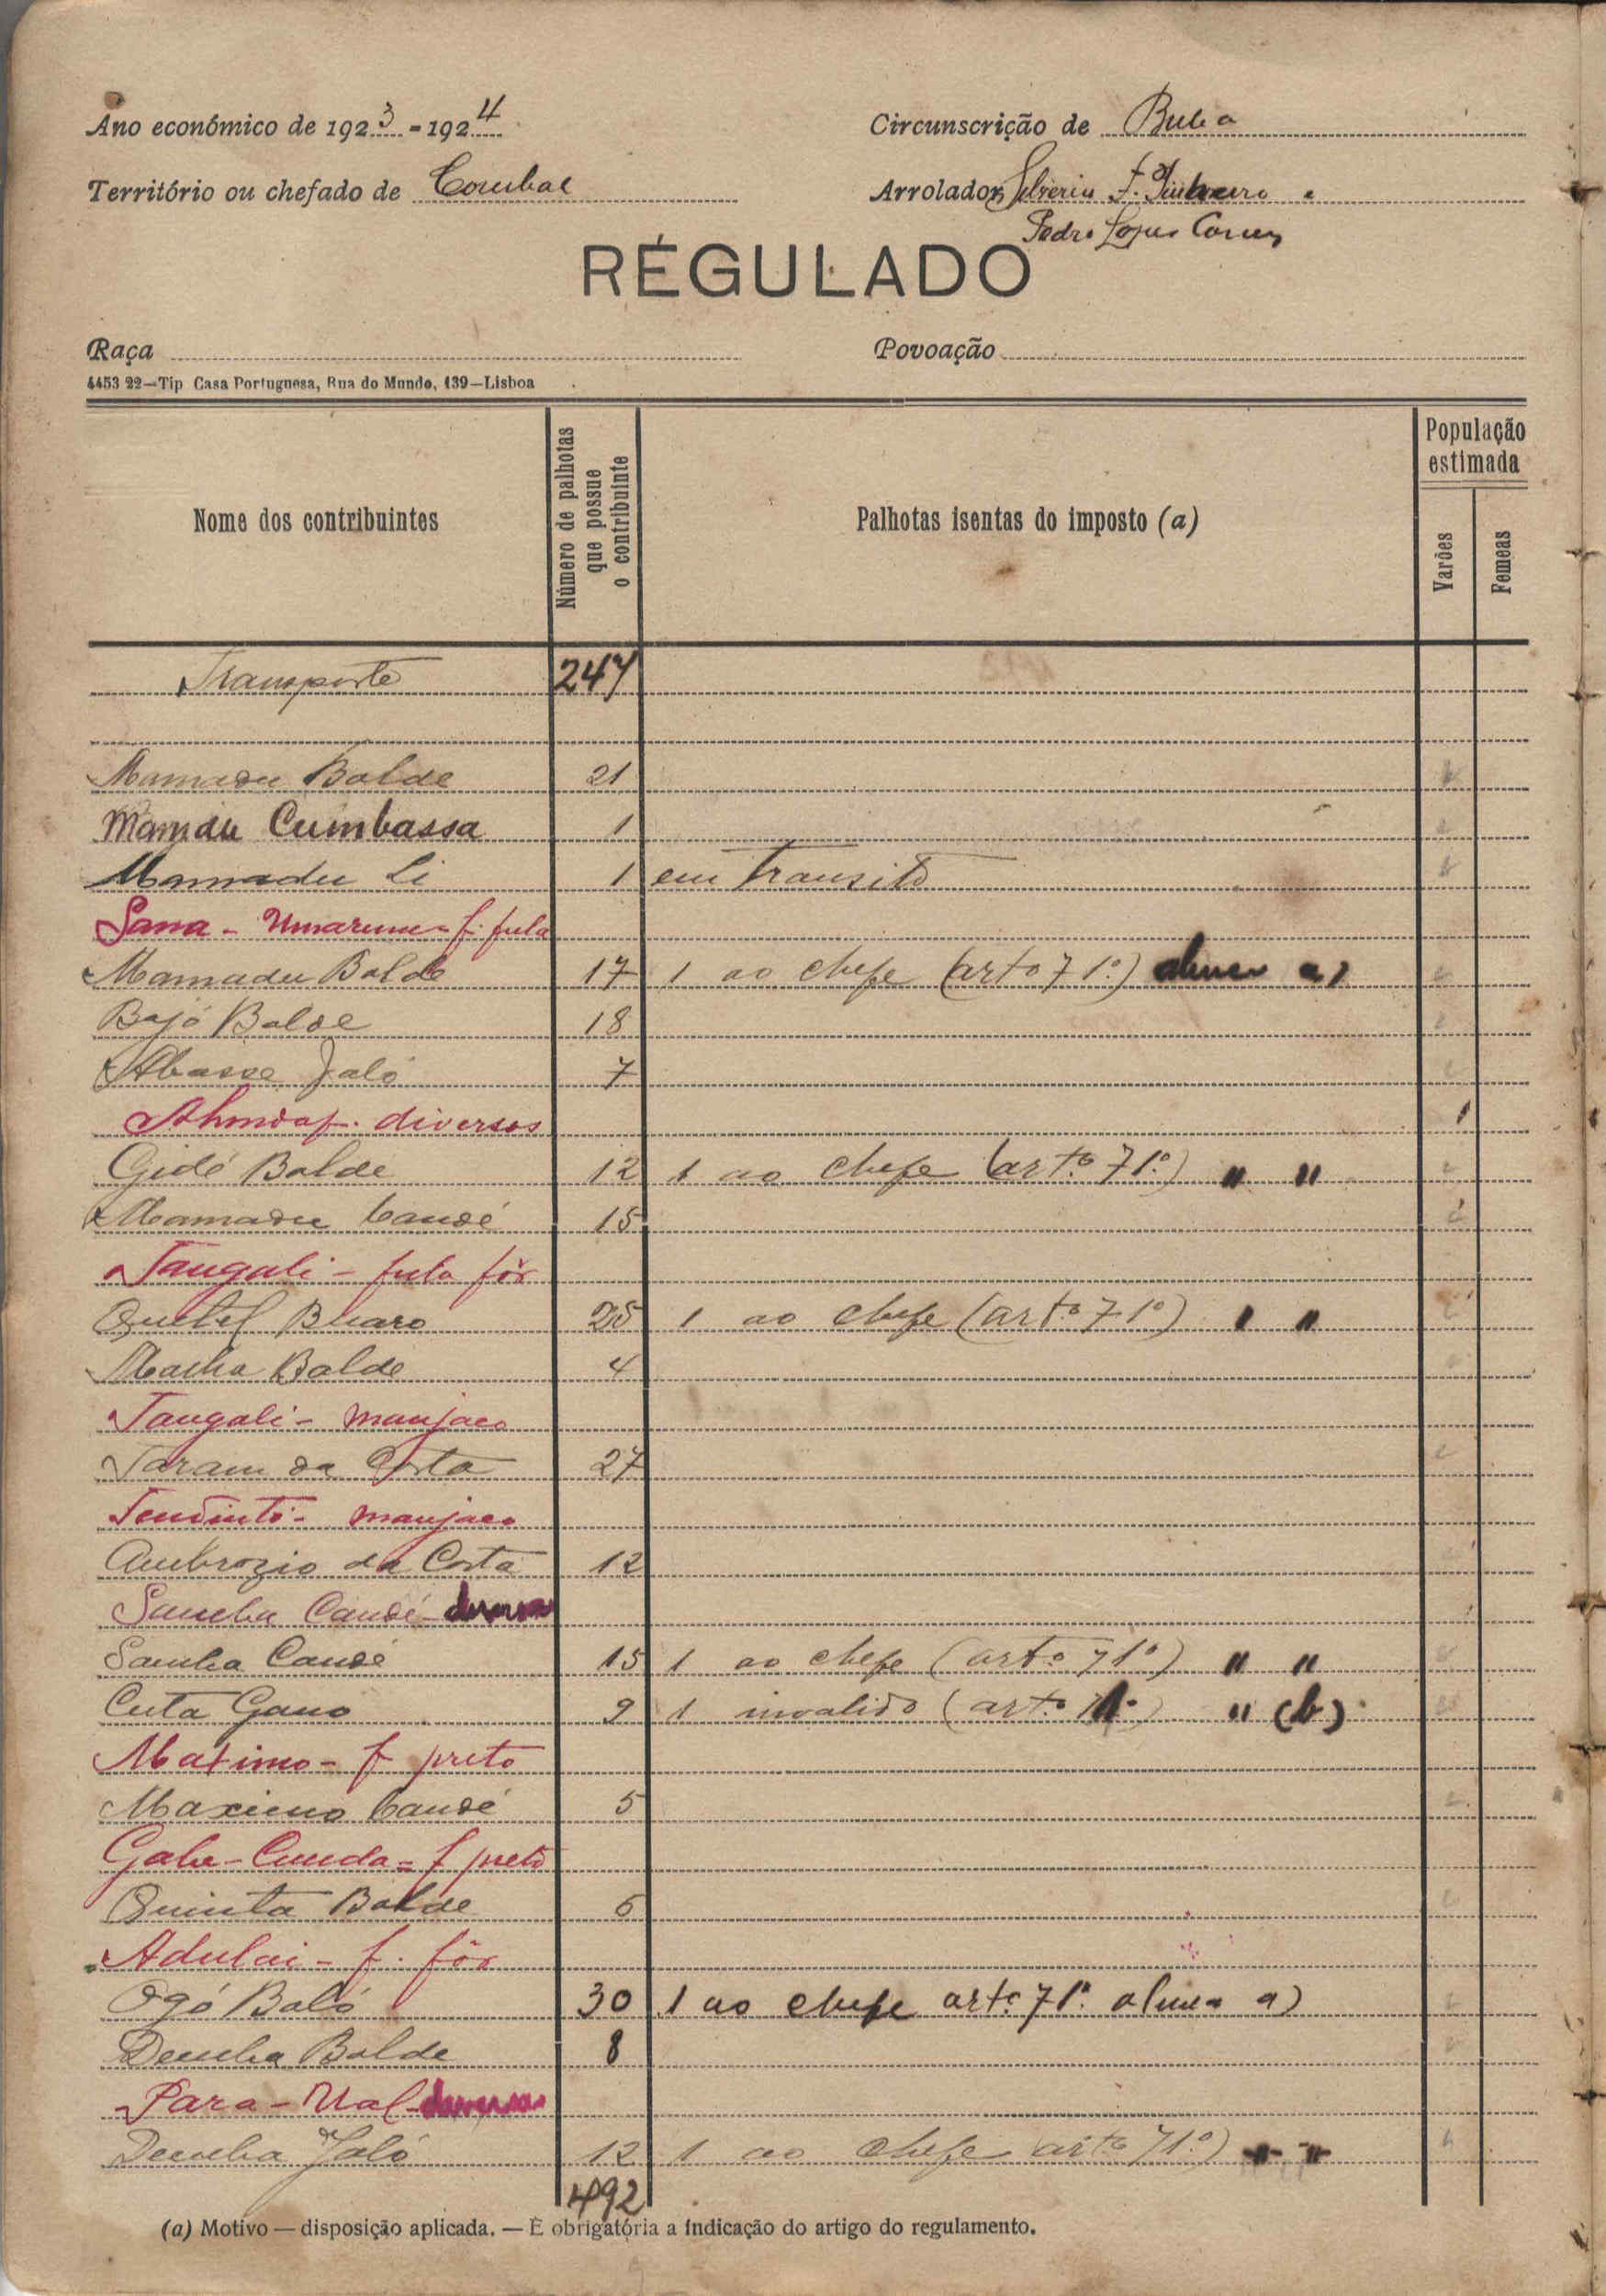 Ano económico de 1923-1924
Circunscrição de Buba
Território ou chefado de Corubal
Arrolador Silverio F. Pinheiro e
Pedro Lopes Correa
RÉGULADO
Raça
Povoação
4453 22—Tip Casa Portuguesa, Rua do Mundo, 139—Lisboa
Nome dos contribuintes
Número de palhotas que possue o contribuinte
Palhotas isentas do imposto (a)
População estimada
Varões
Femeas
Transporte 247
Mamadu Balde 21
Mamdu Cumbassa 1
Mamadu Li 1 em transito
Sana - Umarum - f. fula
Mamadu Balde 17 1 ao chefe (artº 71º) alinea a)
Bajó Balde 18
Abasse Jaló 7
diversos
Gidé Balde 12 1 ao chefe (artº 71º) " "
Mamadu Candé 15
Tangali - fula fôr
Buaro 25 1 ao chefe (artº 71º) " "
Macha Balde 4
Tangali - manjaco
Taram da Costa 27
Tendinto - manjaco
Ambrozio da Costa 12
Samba Candé - diversos
Samba Candé 15 1 ao chefe (artº 71º) " "
Cuta Gano 9 1 invalido (artº 71º) " (b)
Maximo - f preto
Maximo Candé 5
Gabu - Cunda = f preto
Quinta Balde 6
Adulai - f. fôr
Ogó Baló 30 1 ao chefe artº 71º alinea a)
Demba Balde 8
Para - Ual - diversos
Demba Jaló 12 1 ao chefe (artº 71º) " "
492
(a) Motivo — disposição aplicada. — É obrigatória a indicação do artigo do regulamento.